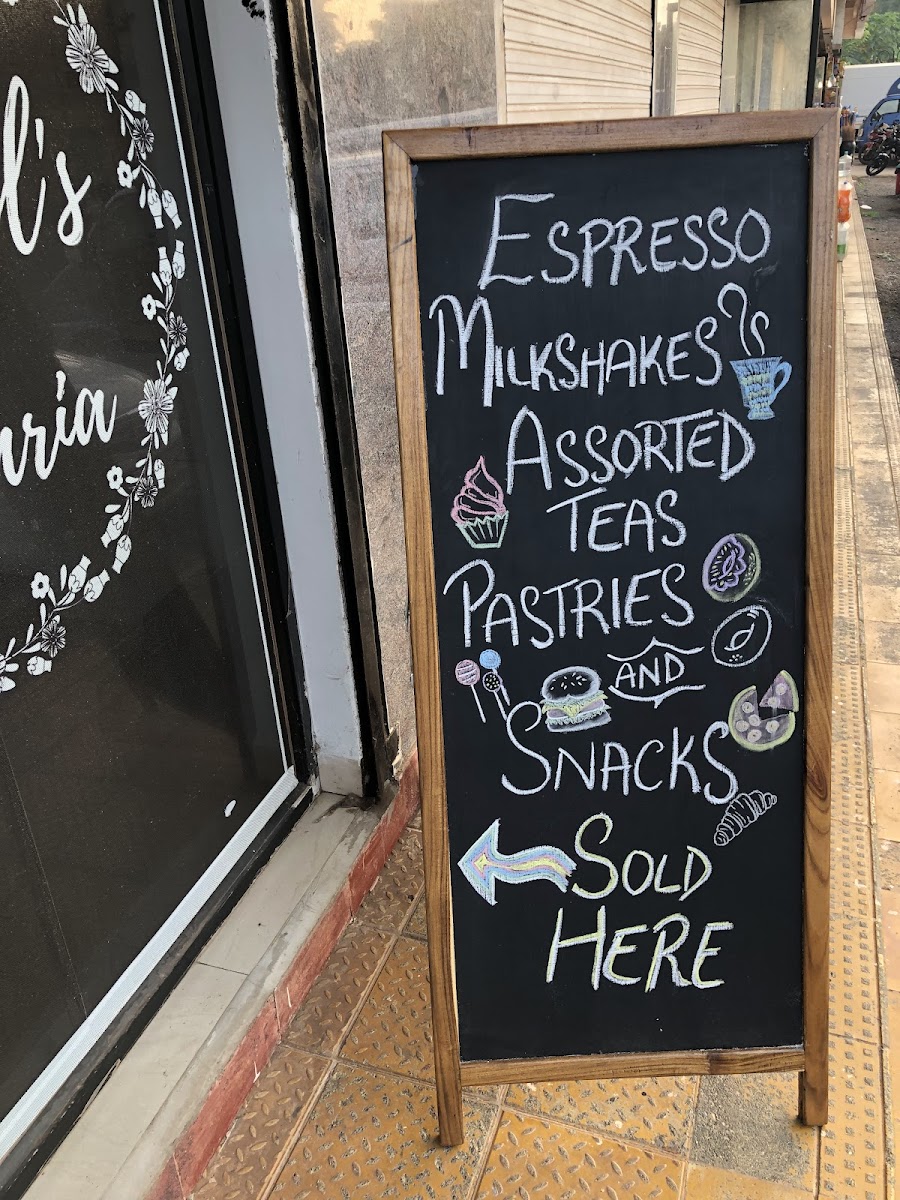 Espresso
Milkshakes
Assorted
Teas
Pastries
and
Snacks
Sold
Here